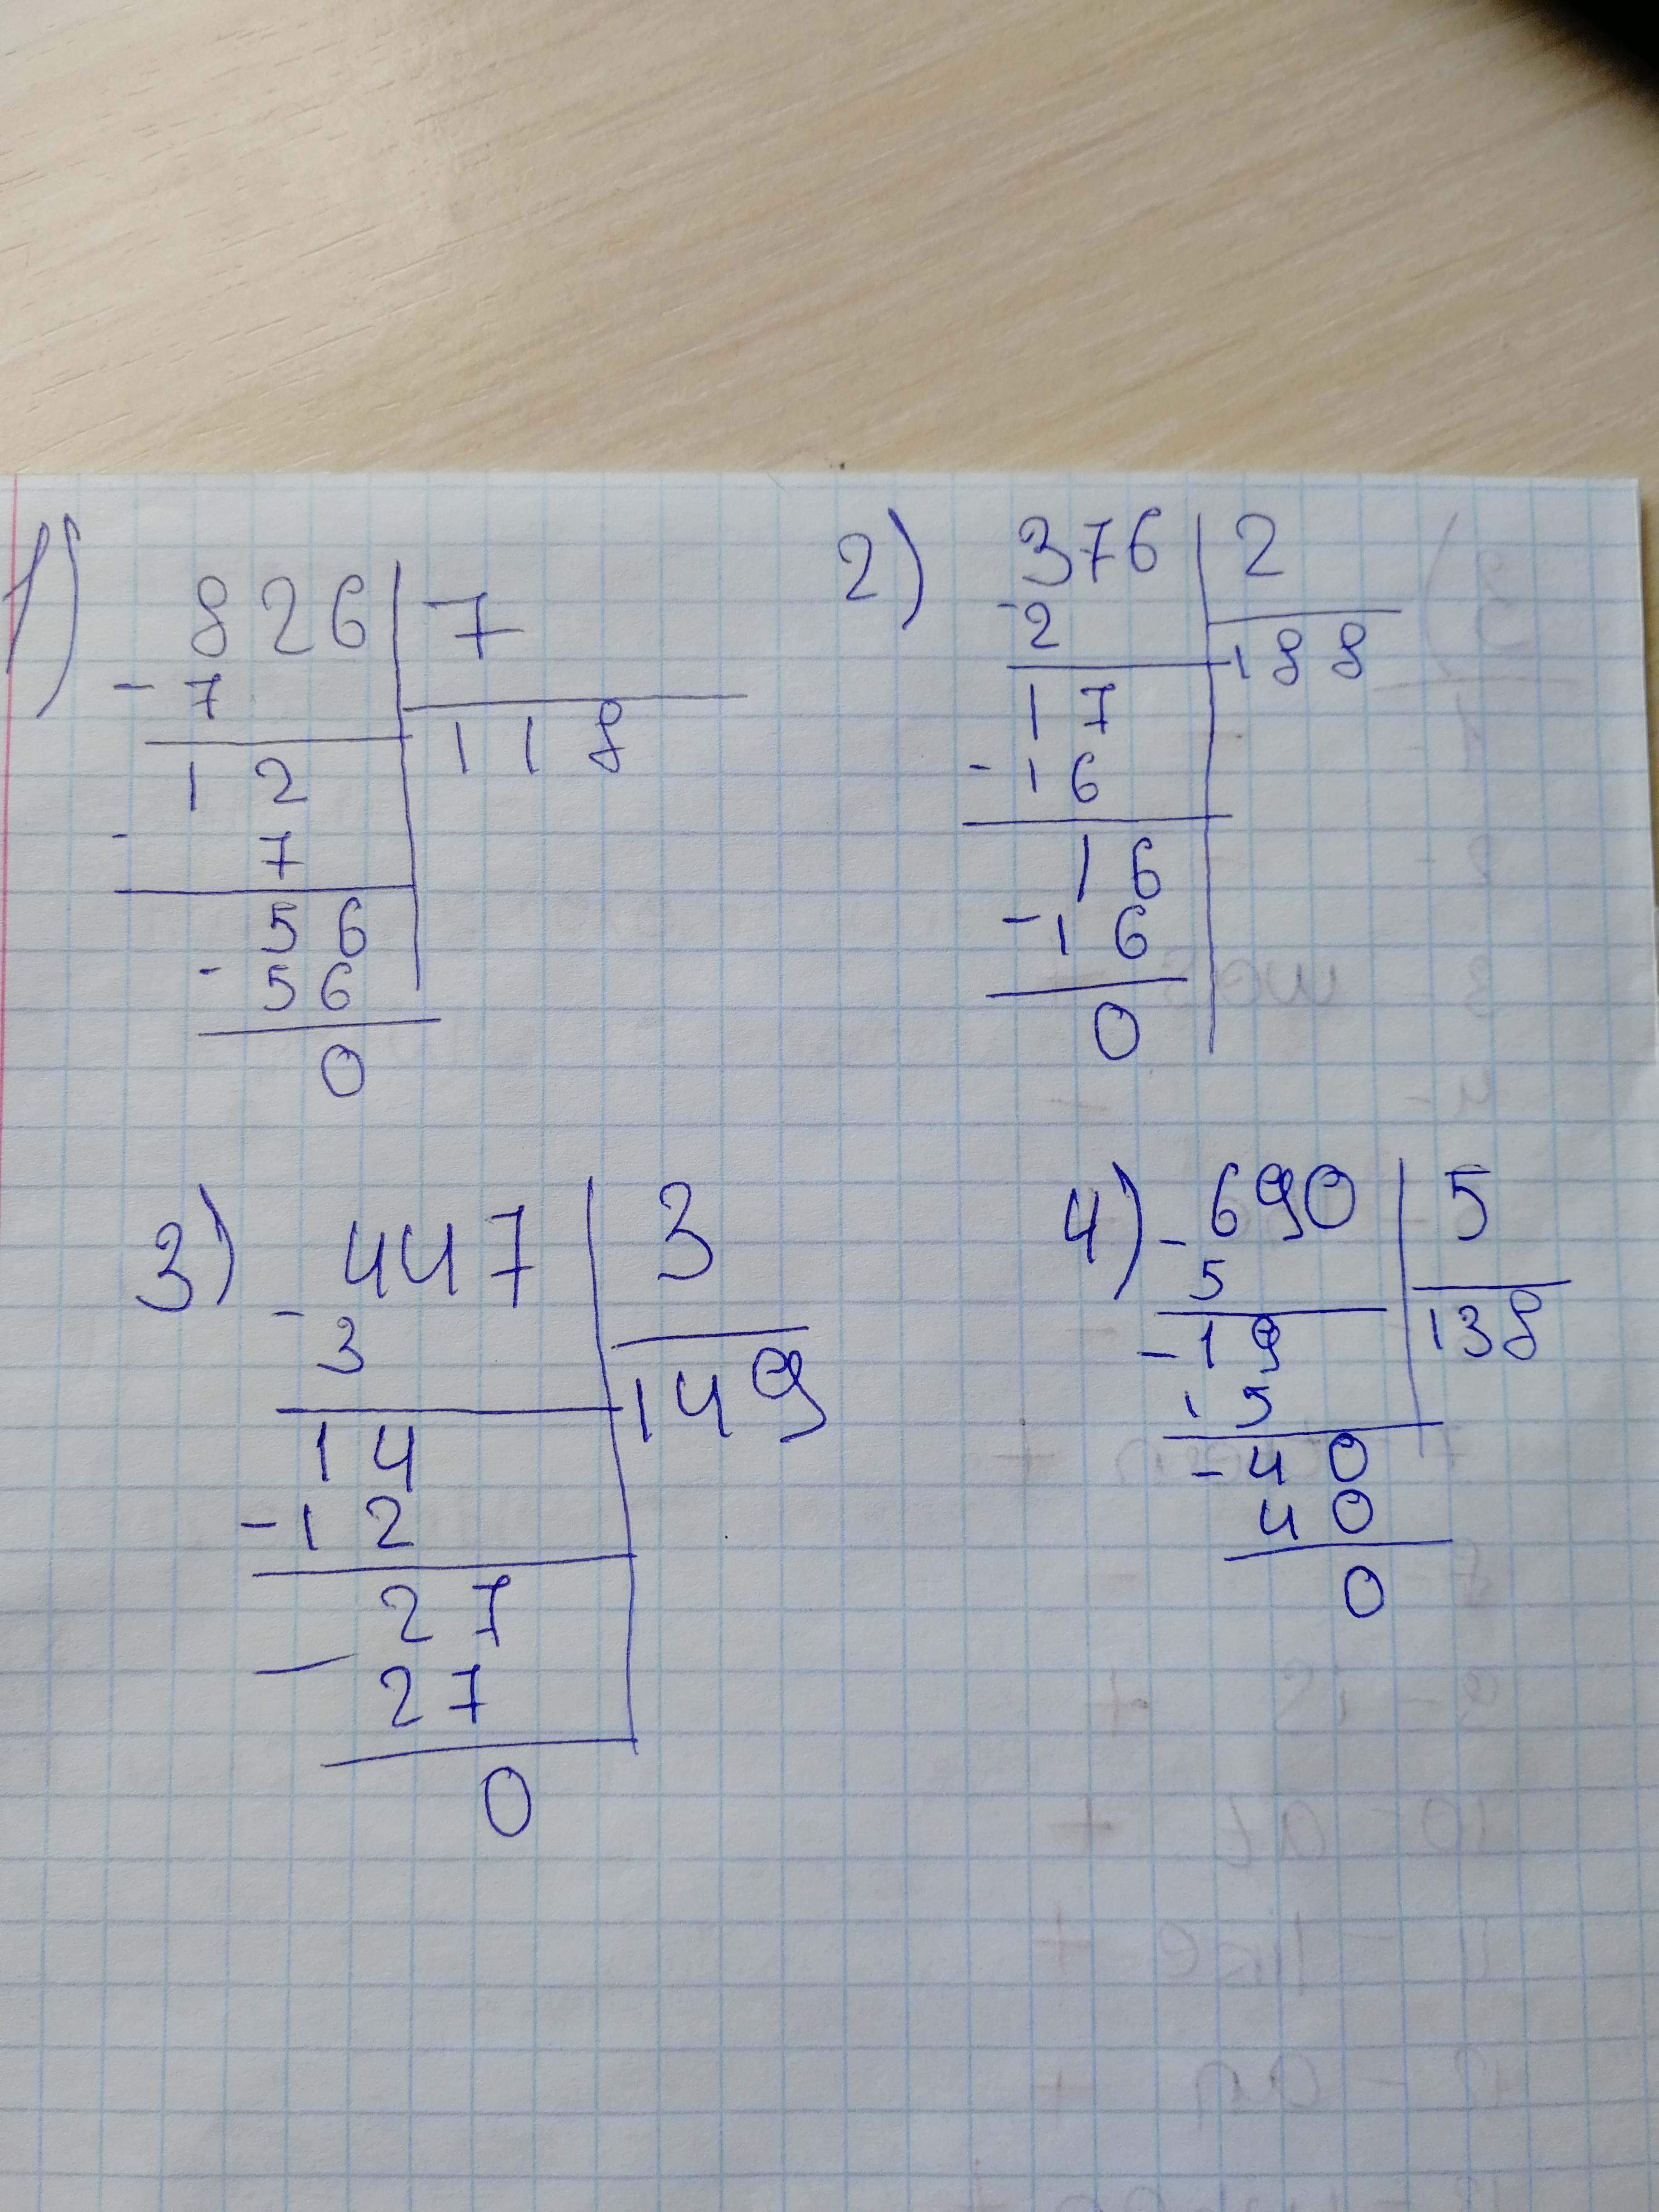 1) 826 7
- 7
118
12
- 7
56
- 56
0
2) 376 2
- 2
188
17
- 16
16
- 16
0
3) 447 3
- 3
149
14
- 12
27
- 27
0
4) - 690 5
5
138
- 19
15
- 40
40
0